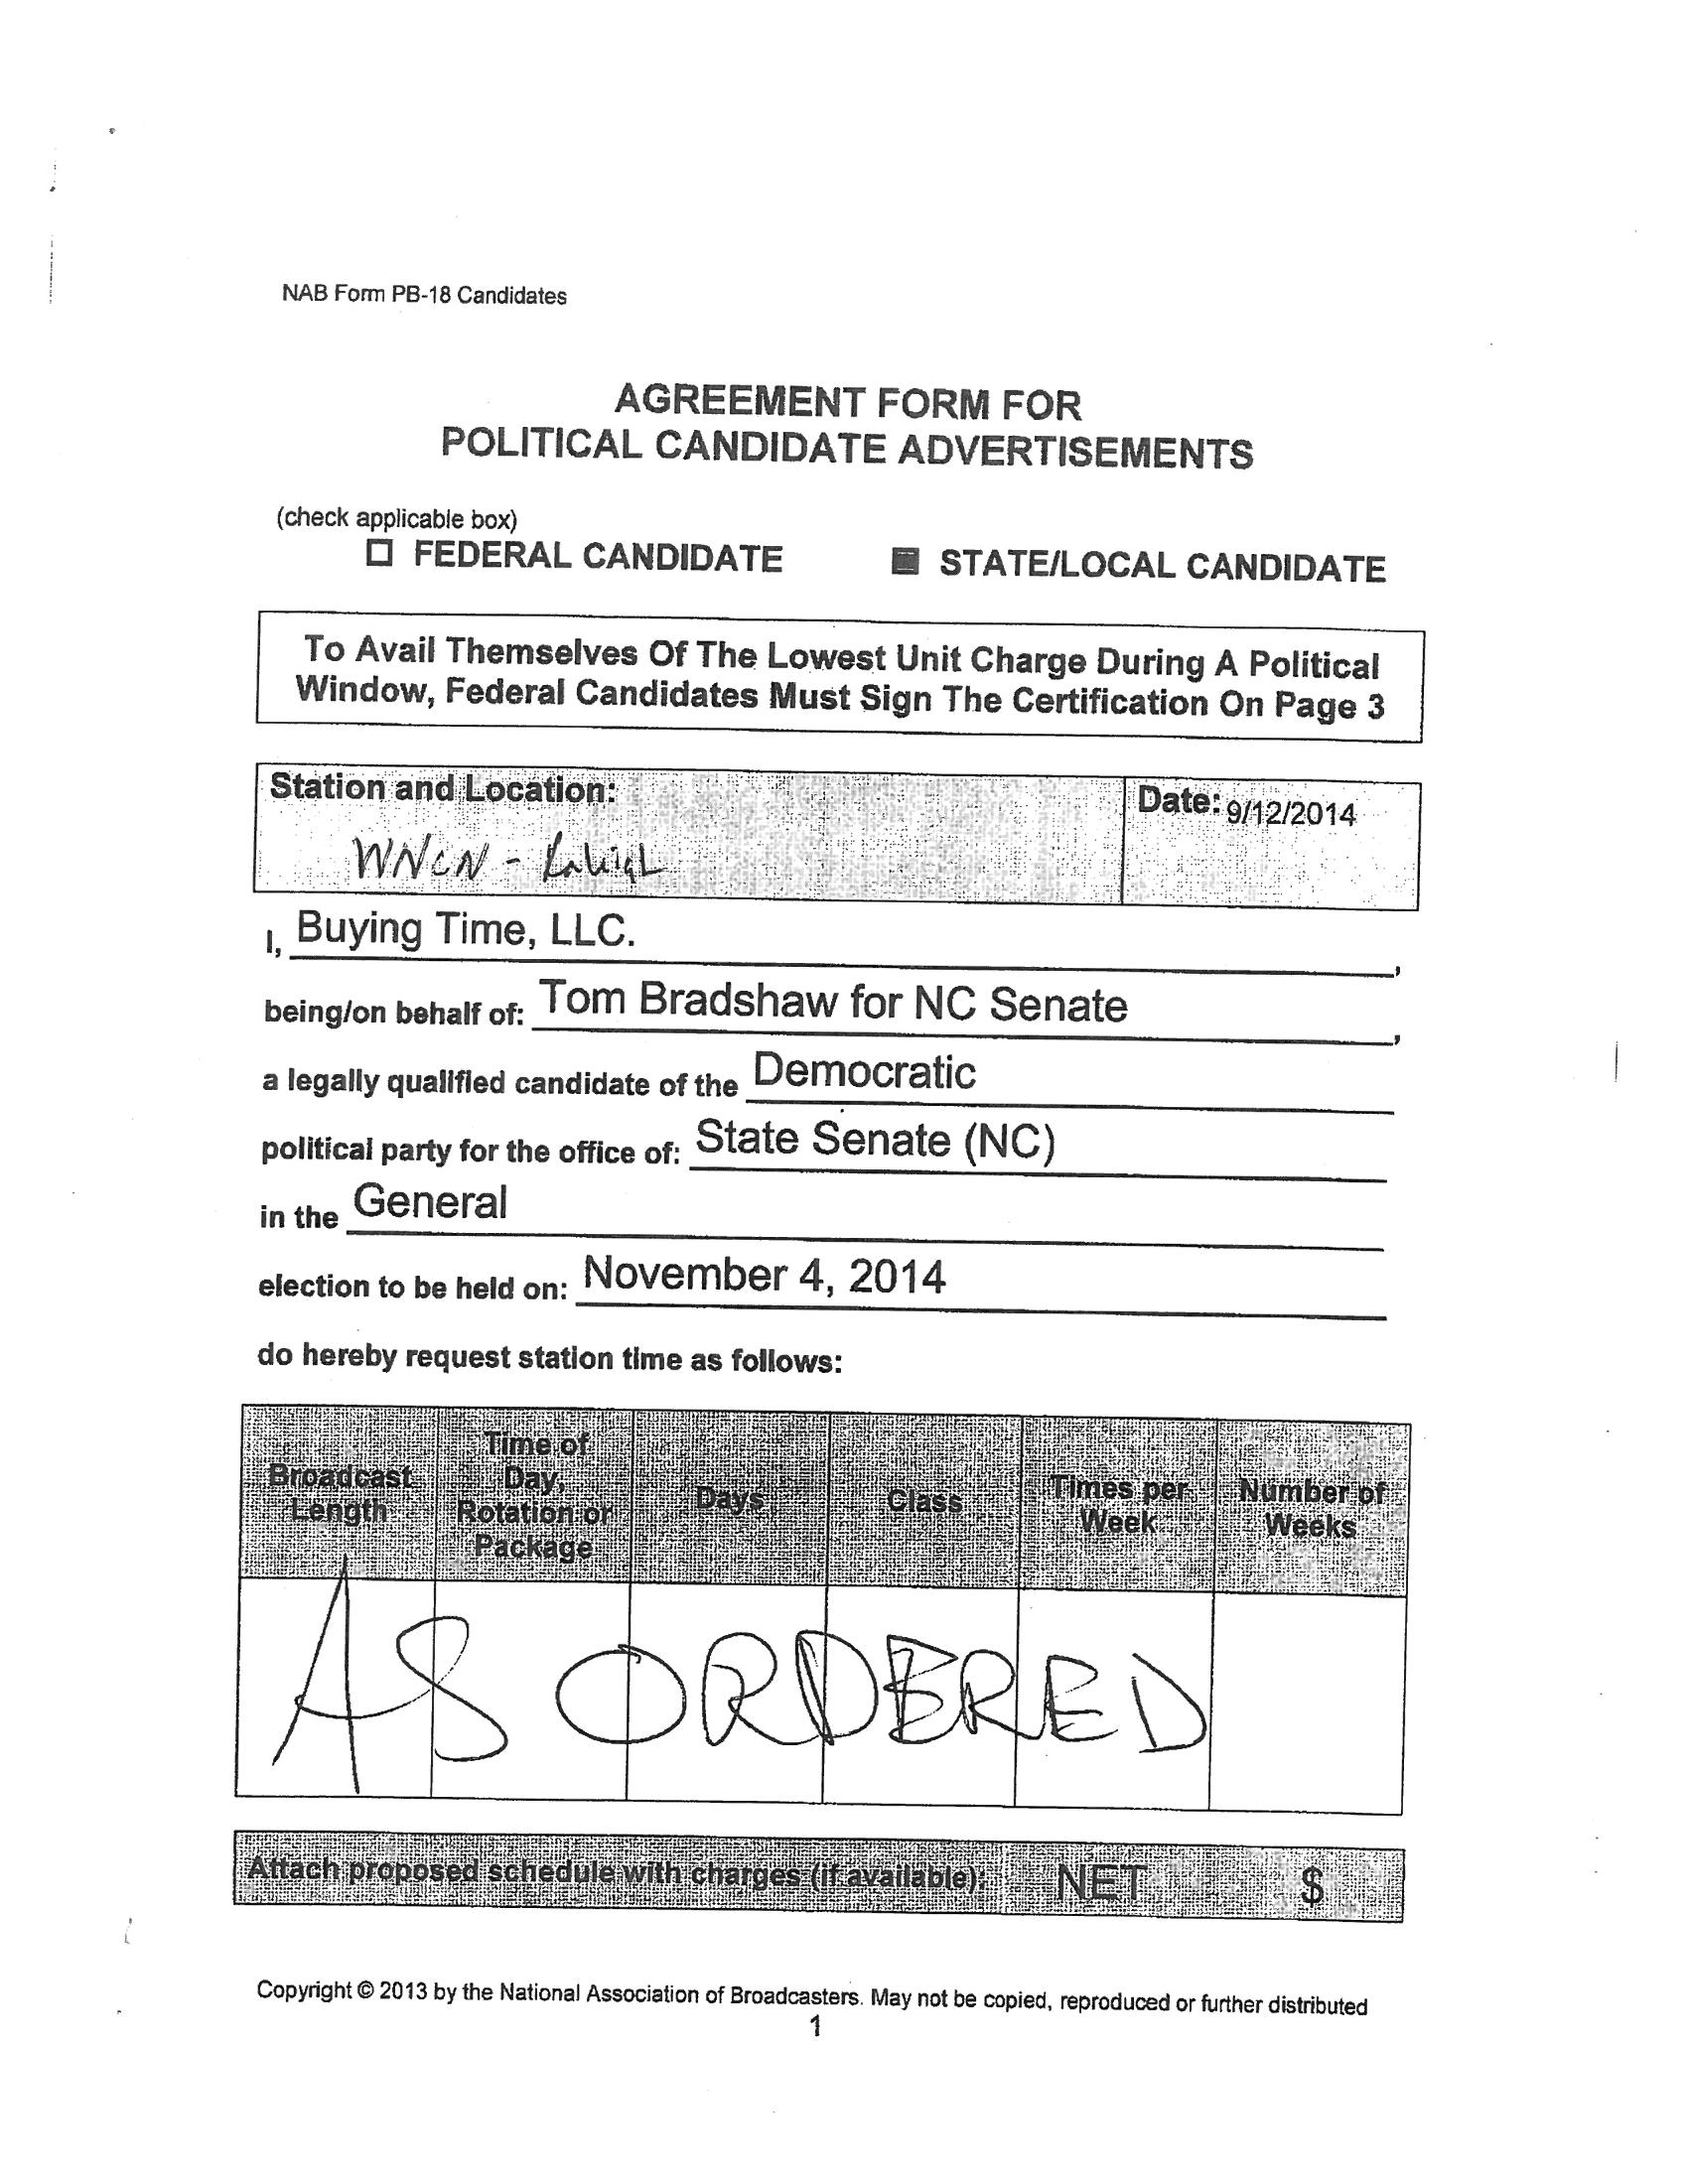 NAB Form PB-18 Candidates
AGREEMENT FORM FOR
POLITICAL CANDIDATE ADVERTISEMENTS
(check applicable box)
☐ FEDERAL CANDIDATE ■ STATE/LOCAL CANDIDATE
To Avail Themselves Of The Lowest Unit Charge During A Political
Window, Federal Candidates Must Sign The Certification On Page 3
Station and Location: Date: 9/12/2014
WNCN - Raleigh
I, Buying Time, LLC. ,
being/on behalf of: Tom Bradshaw for NC Senate ,
a legally qualified candidate of the Democratic
political party for the office of: State Senate (NC)
in the General
election to be held on: November 4, 2014
do hereby request station time as follows:
Broadcast Length
Time of Day, Rotation or Package
Days
Class
Times per Week
Number of Weeks
AS ORDERED
Attach proposed schedule with charges (if available): NET $
Copyright © 2013 by the National Association of Broadcasters. May not be copied, reproduced or further distributed
1